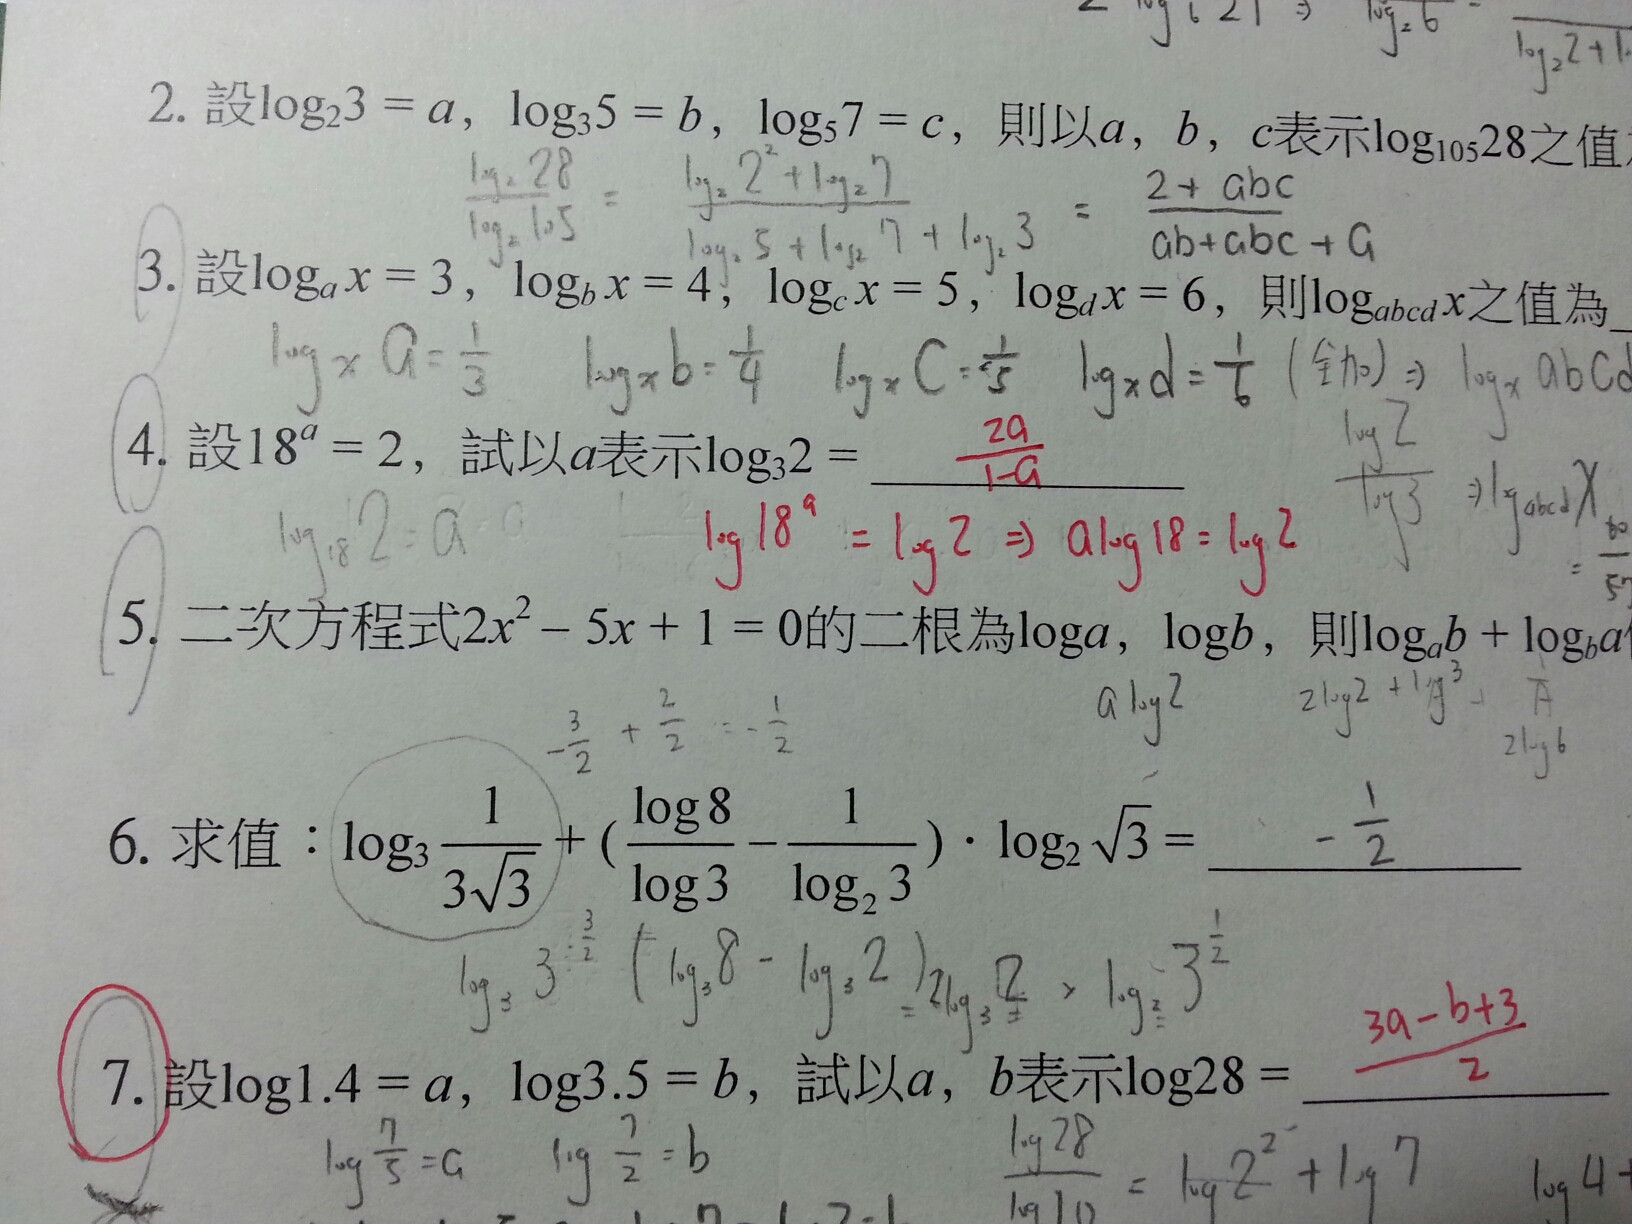 log₆21 ⇒ log₂6 -
log₂2+l
2. 設log₂3 = a, log₃5 = b, log₅7 = c, 則以a, b, c表示log₁₀₅28之值
log₂28 / log₂105 = (log₂2²+log₂7) / (log₂5+log₂7+log₂3) = (2+abc) / (ab+abc+a)
3. 設logₐx = 3, log_b x = 4, log_c x = 5, log_d x = 6, 則log_abcd x之值為
logₓa=1/3 logₓb=1/4 logₓc=1/5 logₓd=1/6 (全加) ⇒ logₓabcd
log2 / log3 ⇒ log_abcd x = 60/57
4. 設18ᵃ = 2, 試以a表示log₃2 = 2a / (1-a)
log₁₈2=a log18ᵃ = log2 ⇒ alog18=log2
5. 二次方程式2x² – 5x + 1 = 0的二根為loga, logb, 則logₐb + log_b a
alog2 2log2+log3
2log6
-3/2 + 2/2 = -1/2
6. 求值：log₃ 1/(3√3) + (log8/log3 – 1/log₂3)·log₂√3 = -1/2
log₃3^(-3/2) (log₃8 - log₃2) = 2log₃2 × log₂3^(1/2)
7. 設log1.4 = a, log3.5 = b, 試以a, b表示log28 = (3a-b+3) / 2
log 7/5 =a log 7/2 =b log28 / log10 = log2²+log7 log4+